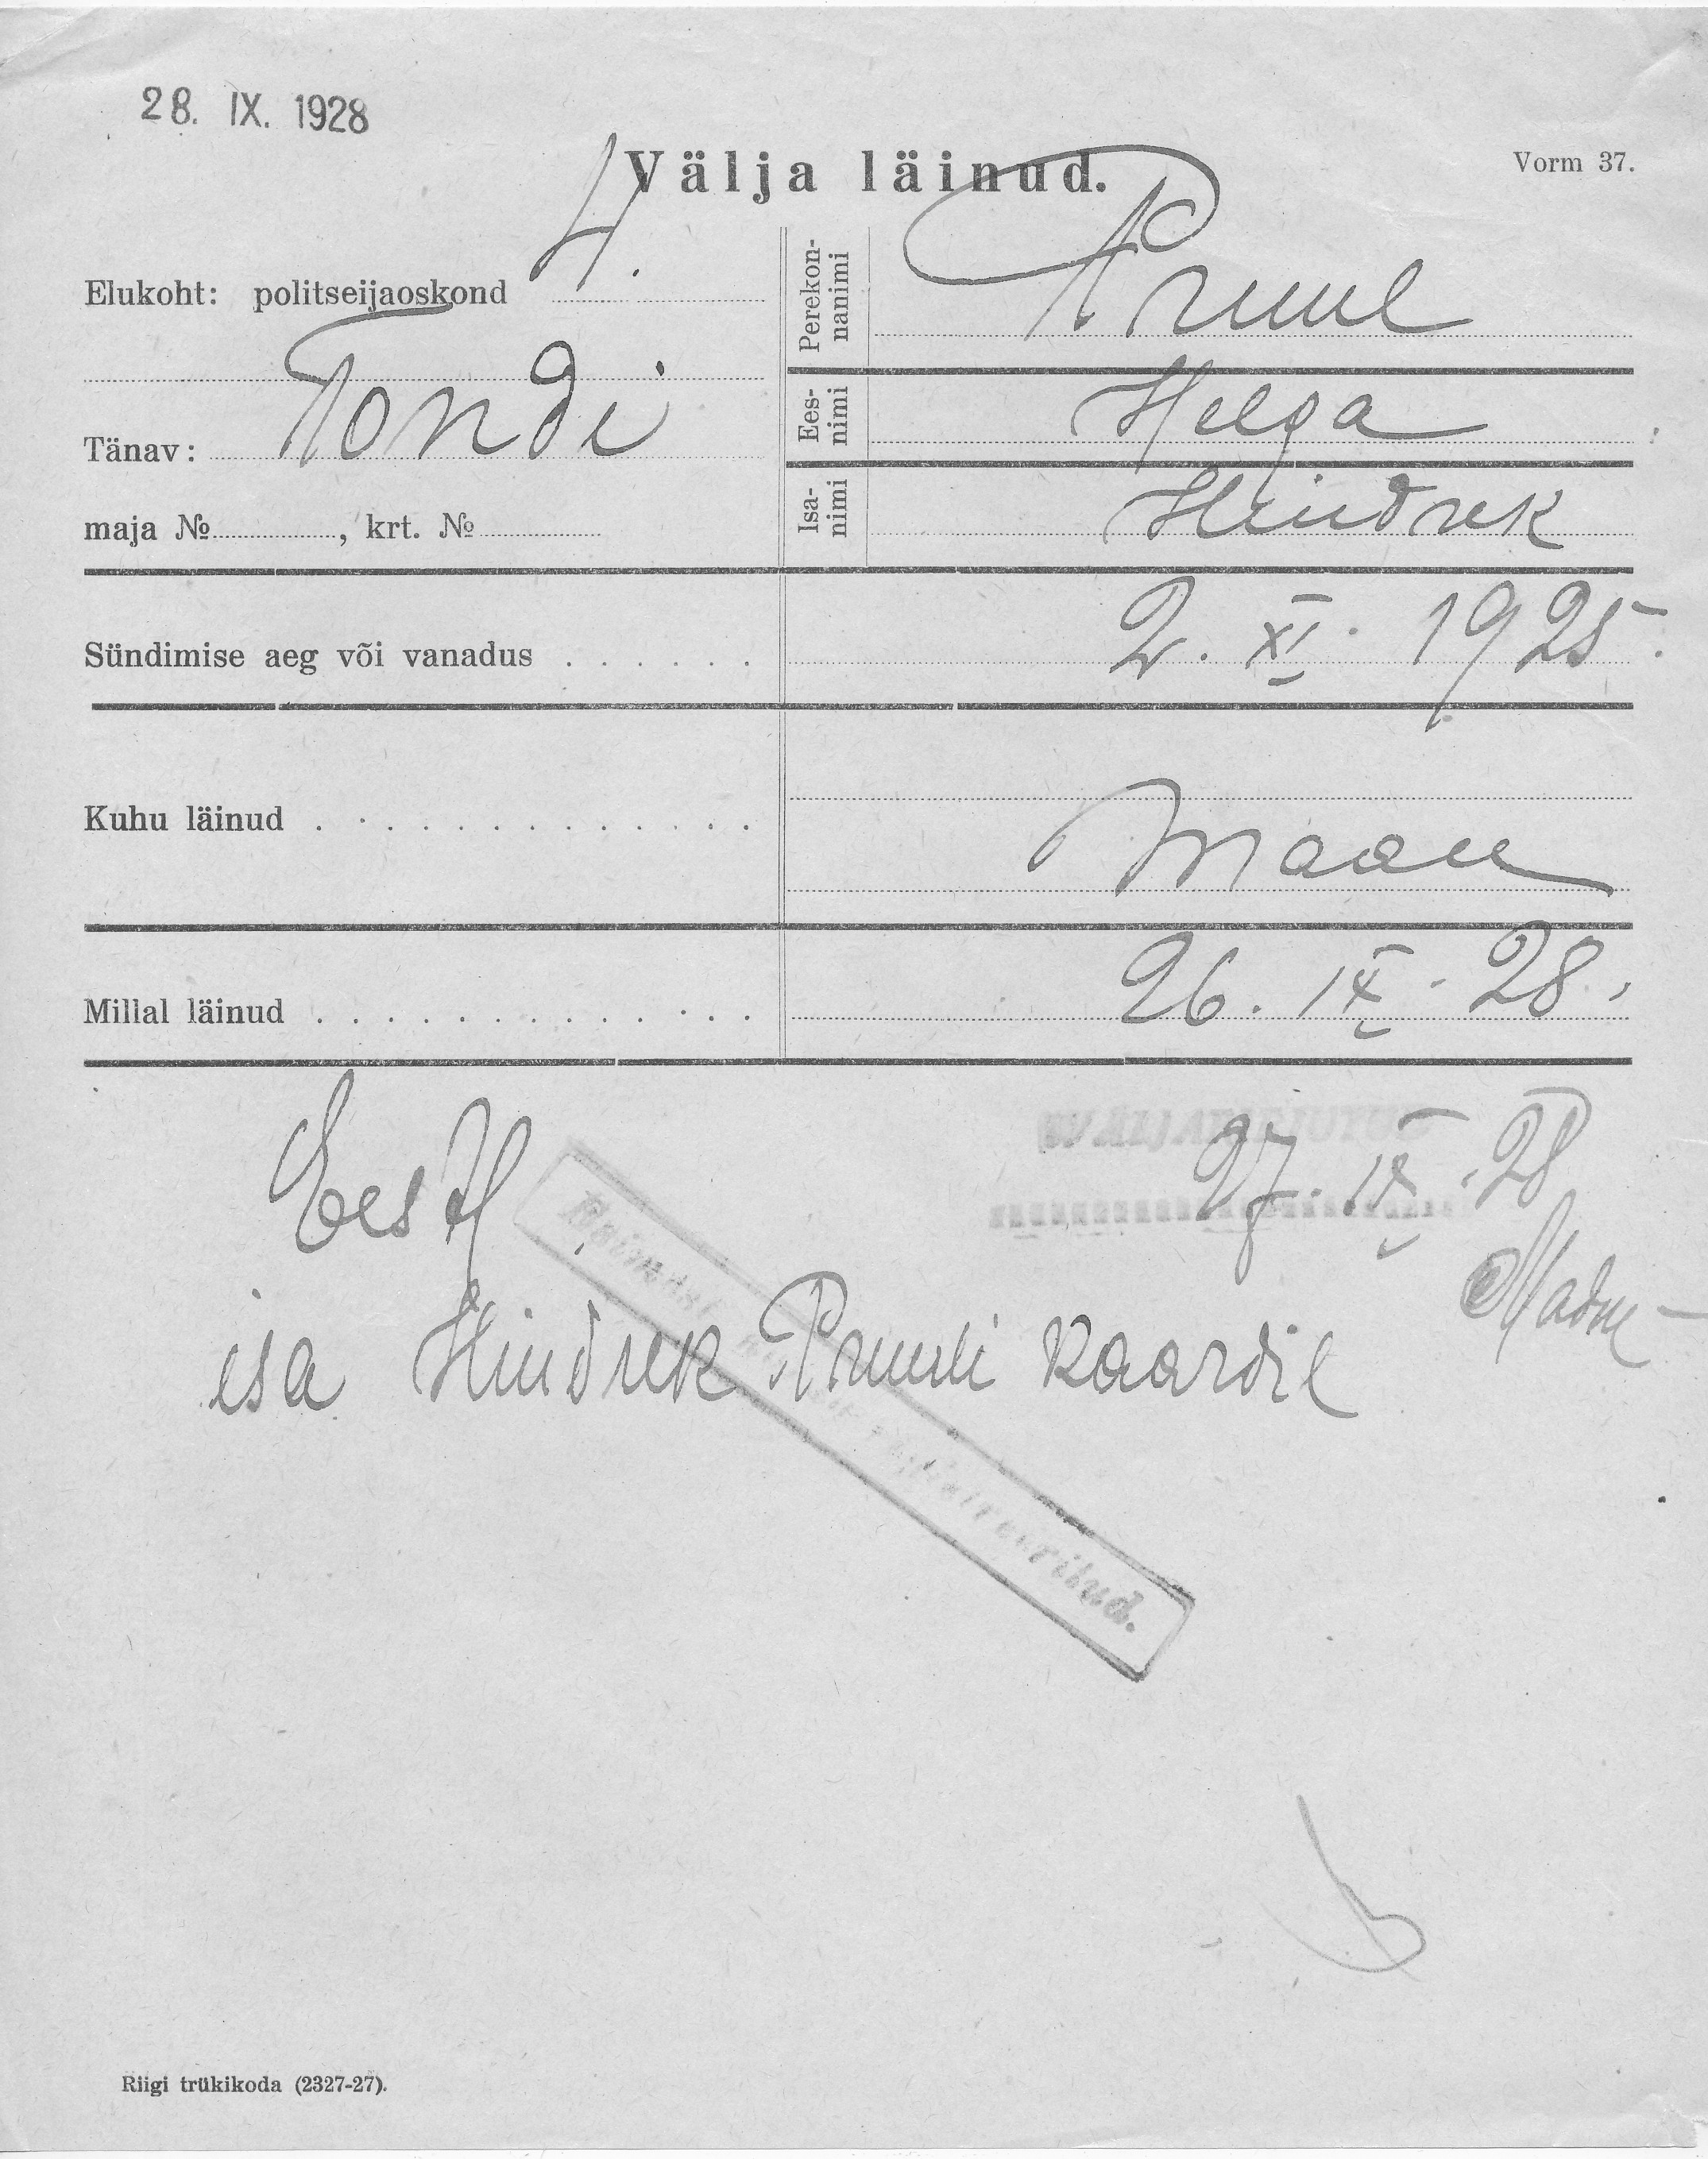 28. IX. 1928
Välja läinud.
Vorm 37.
Elukoht: politseijaoskond 4.
Tänav: Tondi
maja №, krt. №
Perekonnanimi Pruul
Eesnimi Helga
Isanimi Hindrek
Sündimise aeg või vanadus 2. XI. 1925.
Kuhu läinud Maale
Millal läinud 26. IX. 28.
Eestl
27. IX. 28
isa Hindrek Pruuli kaardil
Riigi trükikoda (2327-27).